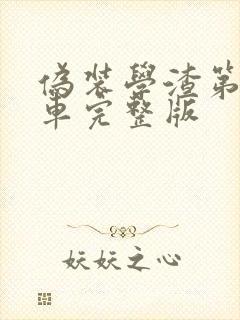 偽装學渣第
車完整版
妖妖之心